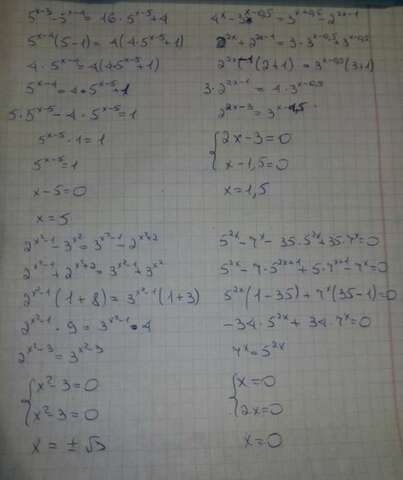 5^{x-3} - 5^{x-4} = 16 · 5^{x-5} + 4
5^{x-4}(5-1) = 4(4·5^{x-5}+1)
4 · 5^{x-4} = 4(4·5^{x-5}+1)
5^{x-4} = 4 · 5^{x-5} + 1
5 · 5^{x-5} - 4 · 5^{x-5} = 1
5^{x-5} · 1 = 1
5^{x-5} = 1
x - 5 = 0
x = 5
4^x - 3^{x-0,5} = 3^{x+0,5} - 2^{2x-1}
2^{2x} + 2^{2x-1} = 3 · 3^{x-0,5} + 3^{x-0,5}
2^{2x-1}(2+1) = 3^{x-0,5}(3+1)
3 · 2^{2x-1} = 4 · 3^{x-0,5}
2^{2x-3} = 3^{x-1,5}
{ 2x - 3 = 0
x - 1,5 = 0
x = 1,5
2^{x²-1} - 3^{x²} = 3^{x²-1} - 2^{x²+2}
2^{x²-1} + 2^{x²+2} = 3^{x²-1} + 3^{x²}
2^{x²-1}(1+8) = 3^{x²-1}(1+3)
2^{x²-1} · 9 = 3^{x²-1} · 4
2^{x²-3} = 3^{x²-3}
{ x² - 3 = 0
x² - 3 = 0
x = ± √3
5^{2x} - 7^x - 35·5^{2x} + 35·7^x = 0
5^{2x} - 7·5^{2x+1} + 5·7^{x+1} - 7^x = 0
5^{2x}(1-35) + 7^x(35-1) = 0
-34 · 5^{2x} + 34 · 7^x = 0
7^x = 5^{2x}
{ x = 0
2x = 0
x = 0